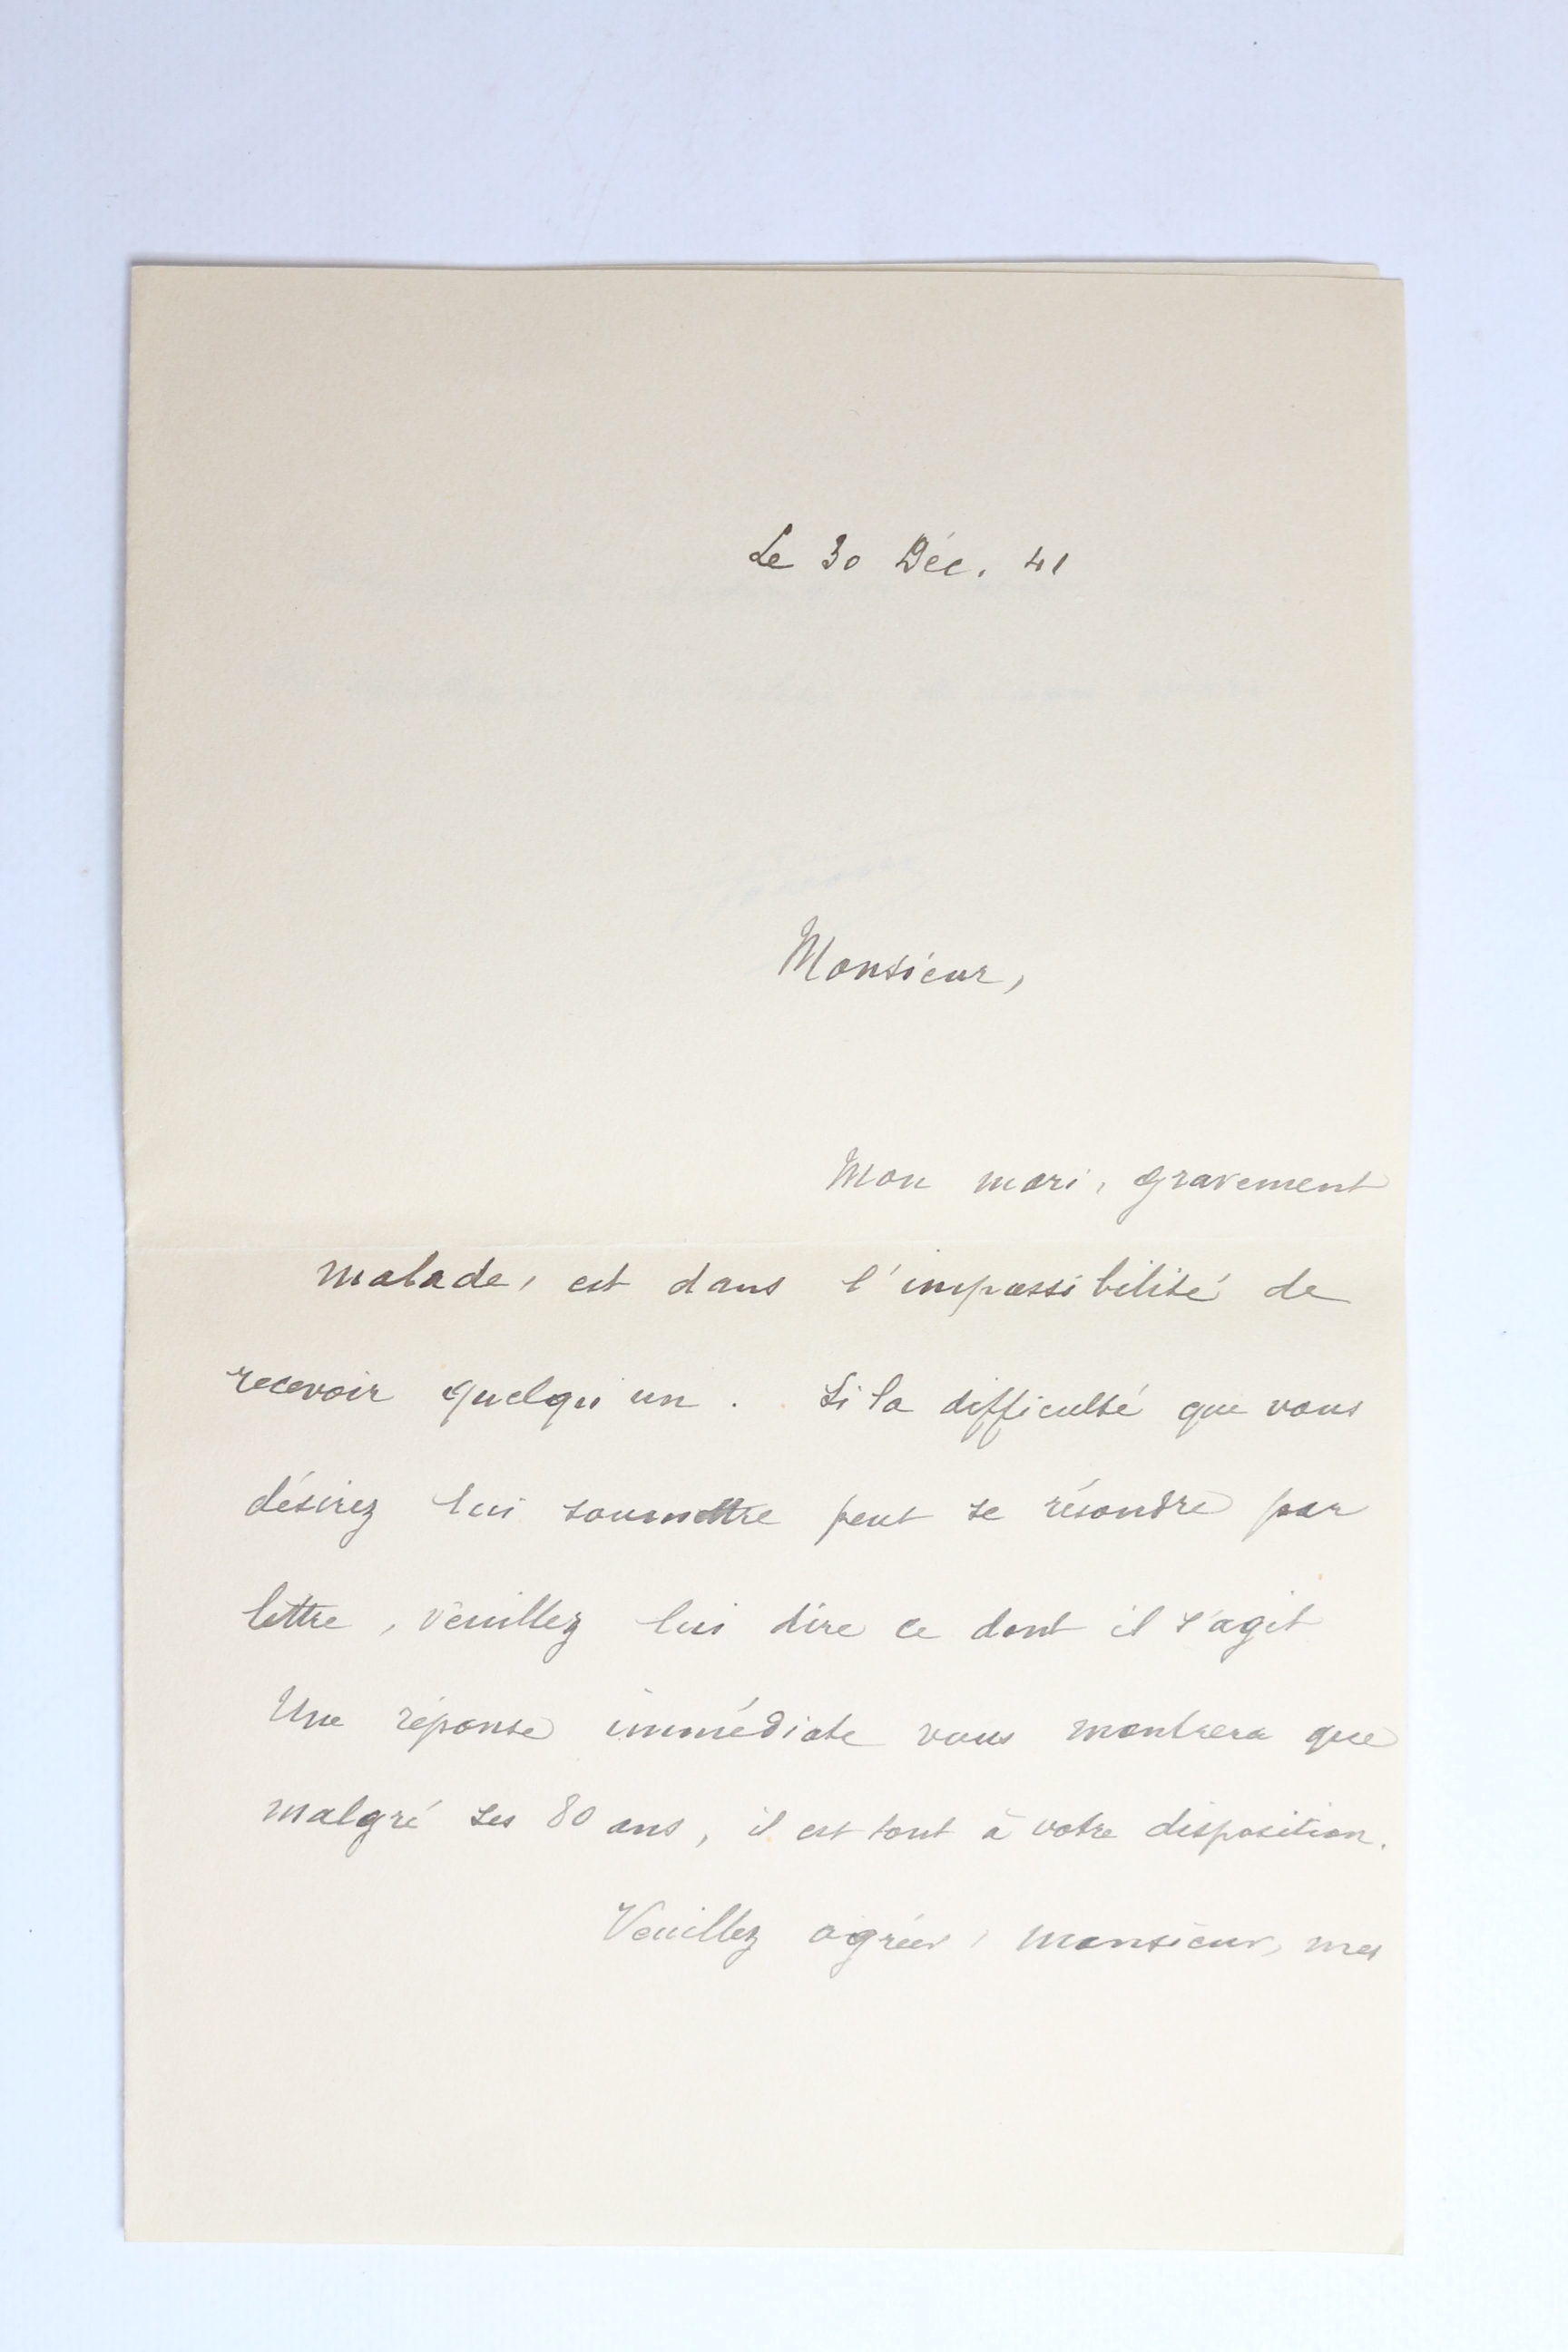 Le 30 Déc. 41
Monsieur,
Mon mari, gravement
malade, est dans l'impossibilité de
recevoir quelqu'un. Si la difficulté que vous
désirez lui soumettre peut se résoudre par
lettre, veuillez lui dire ce dont il s'agit
Une réponse immédiate vous montrera que
malgré ses 80 ans, il est tout à votre disposition.
Veuillez agréer, monsieur, mes